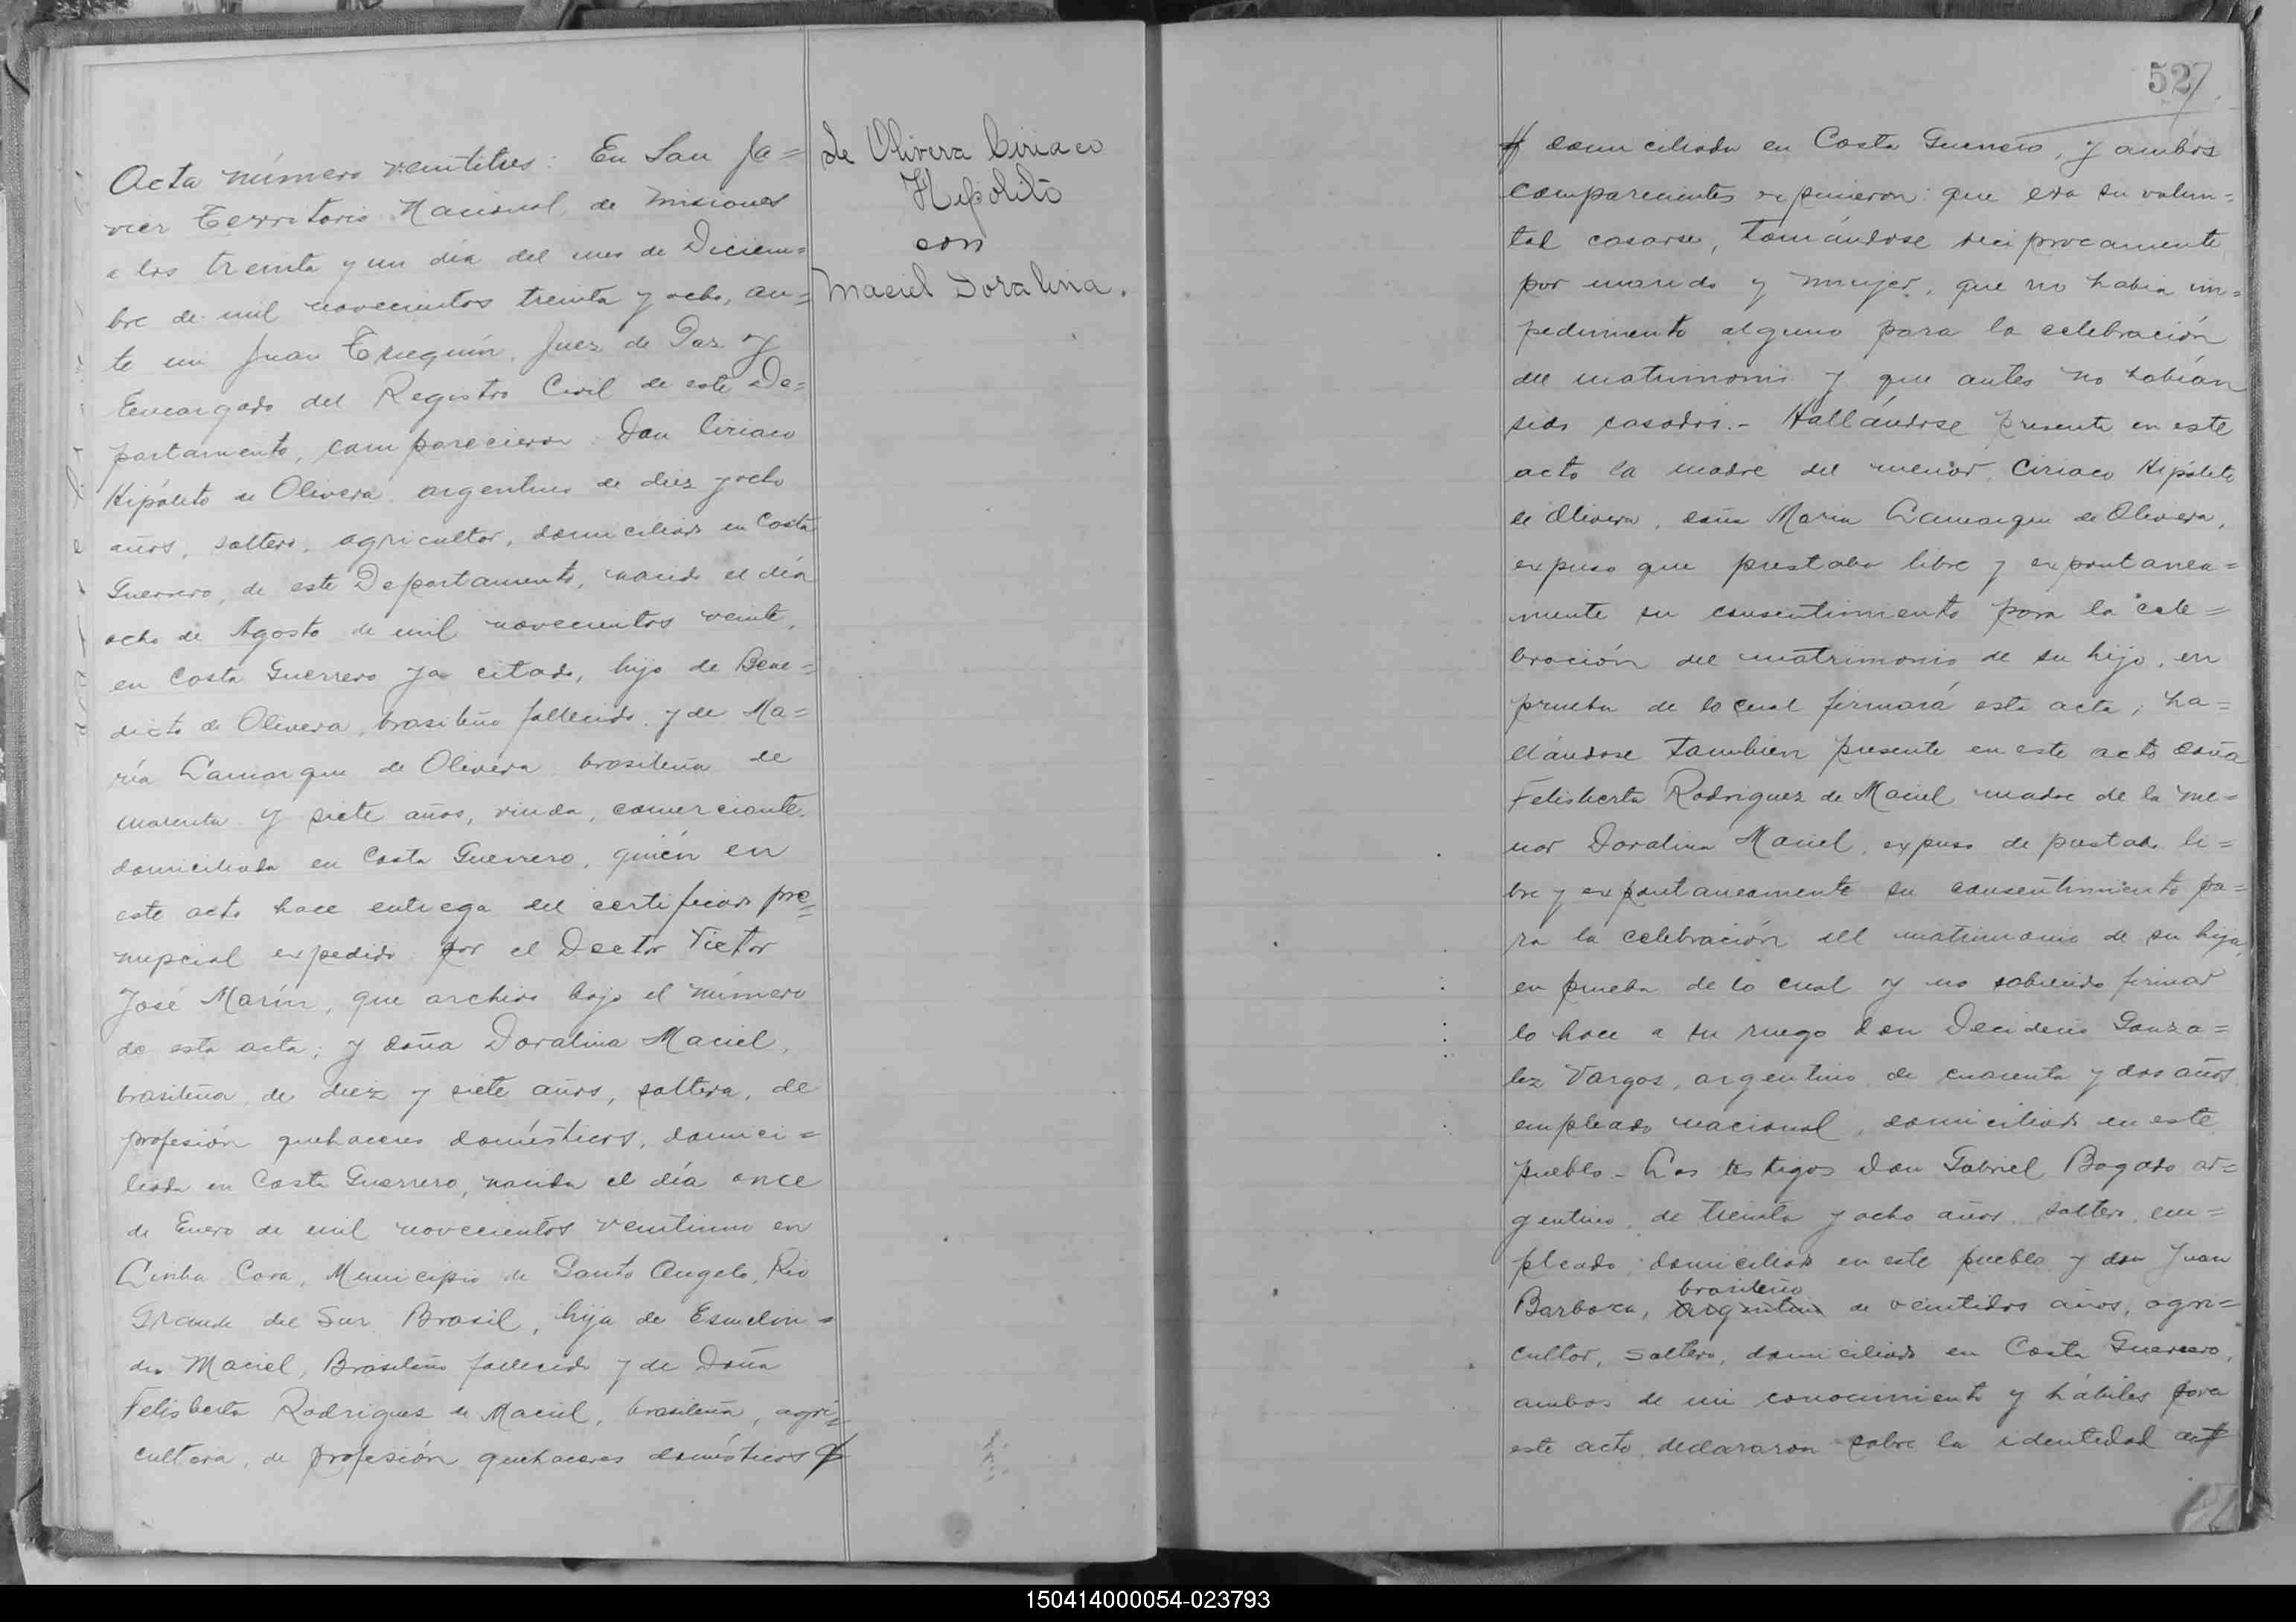 Acta número veintitres: En San Ja=
vier Territorio Nacional de Misiones
a los treinta y un día del mes de Diciem=
bre de mil novecientos treinta y ocho, an=
te mi Juan Juez de Paz y
Encargado del Registro Civil de este De=
partamento, comparecieron: Don Ciriaco
Hipólito de Olivera argentino de diez y ocho
años, soltero, agricultor, domiciliado en Costa
Guerrero, de este Departamento, nacido el día
ocho de Agosto de mil novecientos veinte,
en Costa Guerrero ya citado, hijo de Bene=
dicto de Olivera, brasileño fallecido y de Ma=
ría Camargue de Olivera brasileña de
cuarenta y siete años, viuda, comerciante,
domiciliada en Costa Guerrero, quién en
este acto hace entrega del certificado pre=
nupcial expedido por el Doctor Victor
José Marín, que archivo bajo el número
de esta acta; y doña Doralina Maciel,
brasileña de diez y siete años, soltera, de
profesión quehaceres domésticos, domici=
liada en Costa Guerrero, nacida el día once
de Enero de mil novecientos veintiuno en
Linha Cova, Municipio de Santo Angelo, Rio
Grande del Sur Brasil, hija de
Maciel, Brasileño fallecido y de Doña
Felisberta Rodriguez de Maciel, brasileña, agri=
cultora, de profesión quehaceres domésticos
de Olivera Ciriaco
Hipólito
con
Maciel Doralina.
527
domiciliada en Costa Guerrero, y ambos
comparecientes expusieron: que era su volun=
tad casarse, tomándose reciprocamente
por marido y mujer, que no habia im=
pedimento alguno para la celebración
del matrimonio y que antes no habian
sido casados.- Hallándose presente en este
acto la madre del menor Ciriaco Hipólito
de Olivera, doña Maria Camargue de Olivera,
expuso que prestaba libre y expontanea=
mente su consentimiento para la cele=
bración del matrimonio de su hijo, en
prueba de lo cual firmará esta acta; ha=
llándose tambien presente en este acto doña
Felisberta Rodriguez de Maciel madre de la me=
nor Doralina Maciel, expuso de prestado li=
bre y expontaneamente su consentimiento pa=
ra la celebración del matrimonio de su hija,
en prueba de lo cual y no sabiendo firmar
lo hace a su ruego don Deciderio Gonza=
lez Vargas, argentino de cuarenta y dos años
empleado nacional, domiciliado en este
pueblo - Los testigos don Gabriel Bogado ar=
gentino, de treinta y ocho años soltero em=
pleado domiciliado en este pueblo y don Juan
brasileño
Barboza, argentino de veintidos años, agri=
cultor, soltero, domiciliado en Costa Guerrero,
ambos de mi conocimiento y hábiles para
este acto, declararon sobre la identidad
150414000054-023793